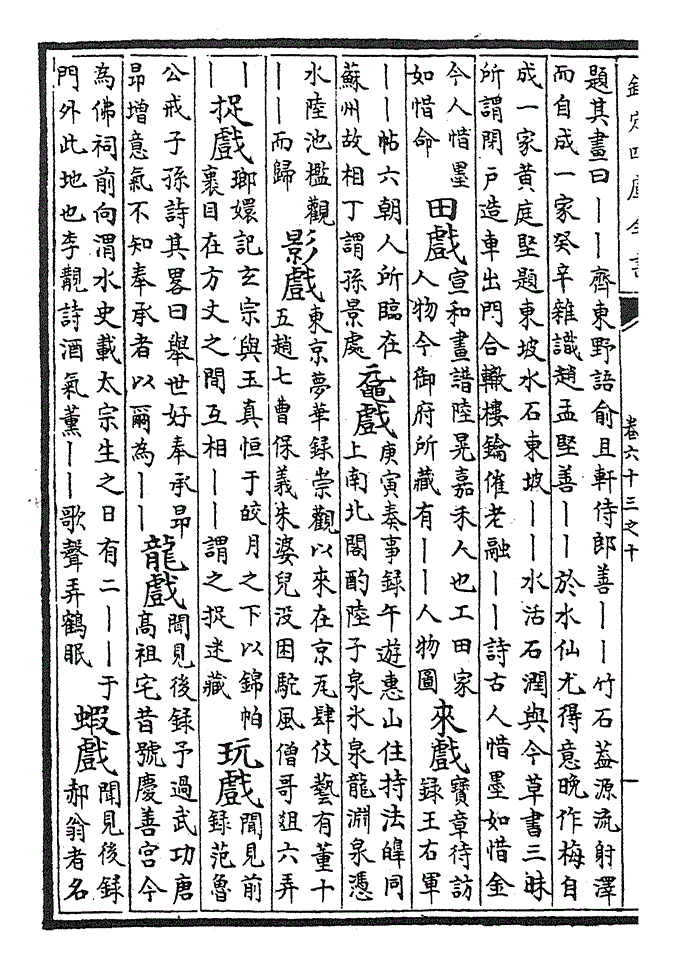 欽定四庫全書
卷六十三之十
題其畫曰丨丨齊東野語俞且軒侍郎善丨丨竹石葢源流射澤
而自成一家癸辛雜識趙孟堅善丨丨於水仙尤得意晚作梅自
成一家黄庭堅題東坡水石東坡丨丨水活石潤與今草書三昧
所謂閉戶造車出門合轍樓鑰催老融丨丨詩古人惜墨如惜金
今人惜墨
如惜命
田戲
宣和畫譜陸晃嘉禾人也工田家
人物今御府所藏有丨丨人物圖
來戲
寶章待訪
録王右軍
丨丨帖六朝人所臨在
蘇州故相丁謂孫景處
黿戲
庚寅奏事録午遊惠山住持法皥同
上南北閣酌陸子泉氷泉龍淵泉憑
水陸池檻觀
丨丨而歸
影戲
東京夢華録崇觀以來在京瓦肆伎藝有董十
五趙七曹保義朱婆兒沒困駝風僧哥爼六弄
丨
丨
捉戲
瑯嬛記玄宗與玉真恒于皎月之下以錦帕
裹目在方丈之間互相丨丨謂之捉迷藏
玩戲
聞見前
録范魯
公戒子孫詩其畧曰舉世好奉承昻
昻增意氣不知奉承者以爾為丨丨
龍戲
聞見後録予過武功唐
髙祖宅昔號慶善宮今
為佛祠前向渭水史載太宗生之日有二丨丨于
門外此地也李靚詩酒氣薰丨丨歌聲弄鶴眠
蝦戲
聞見後録
郝翁者名